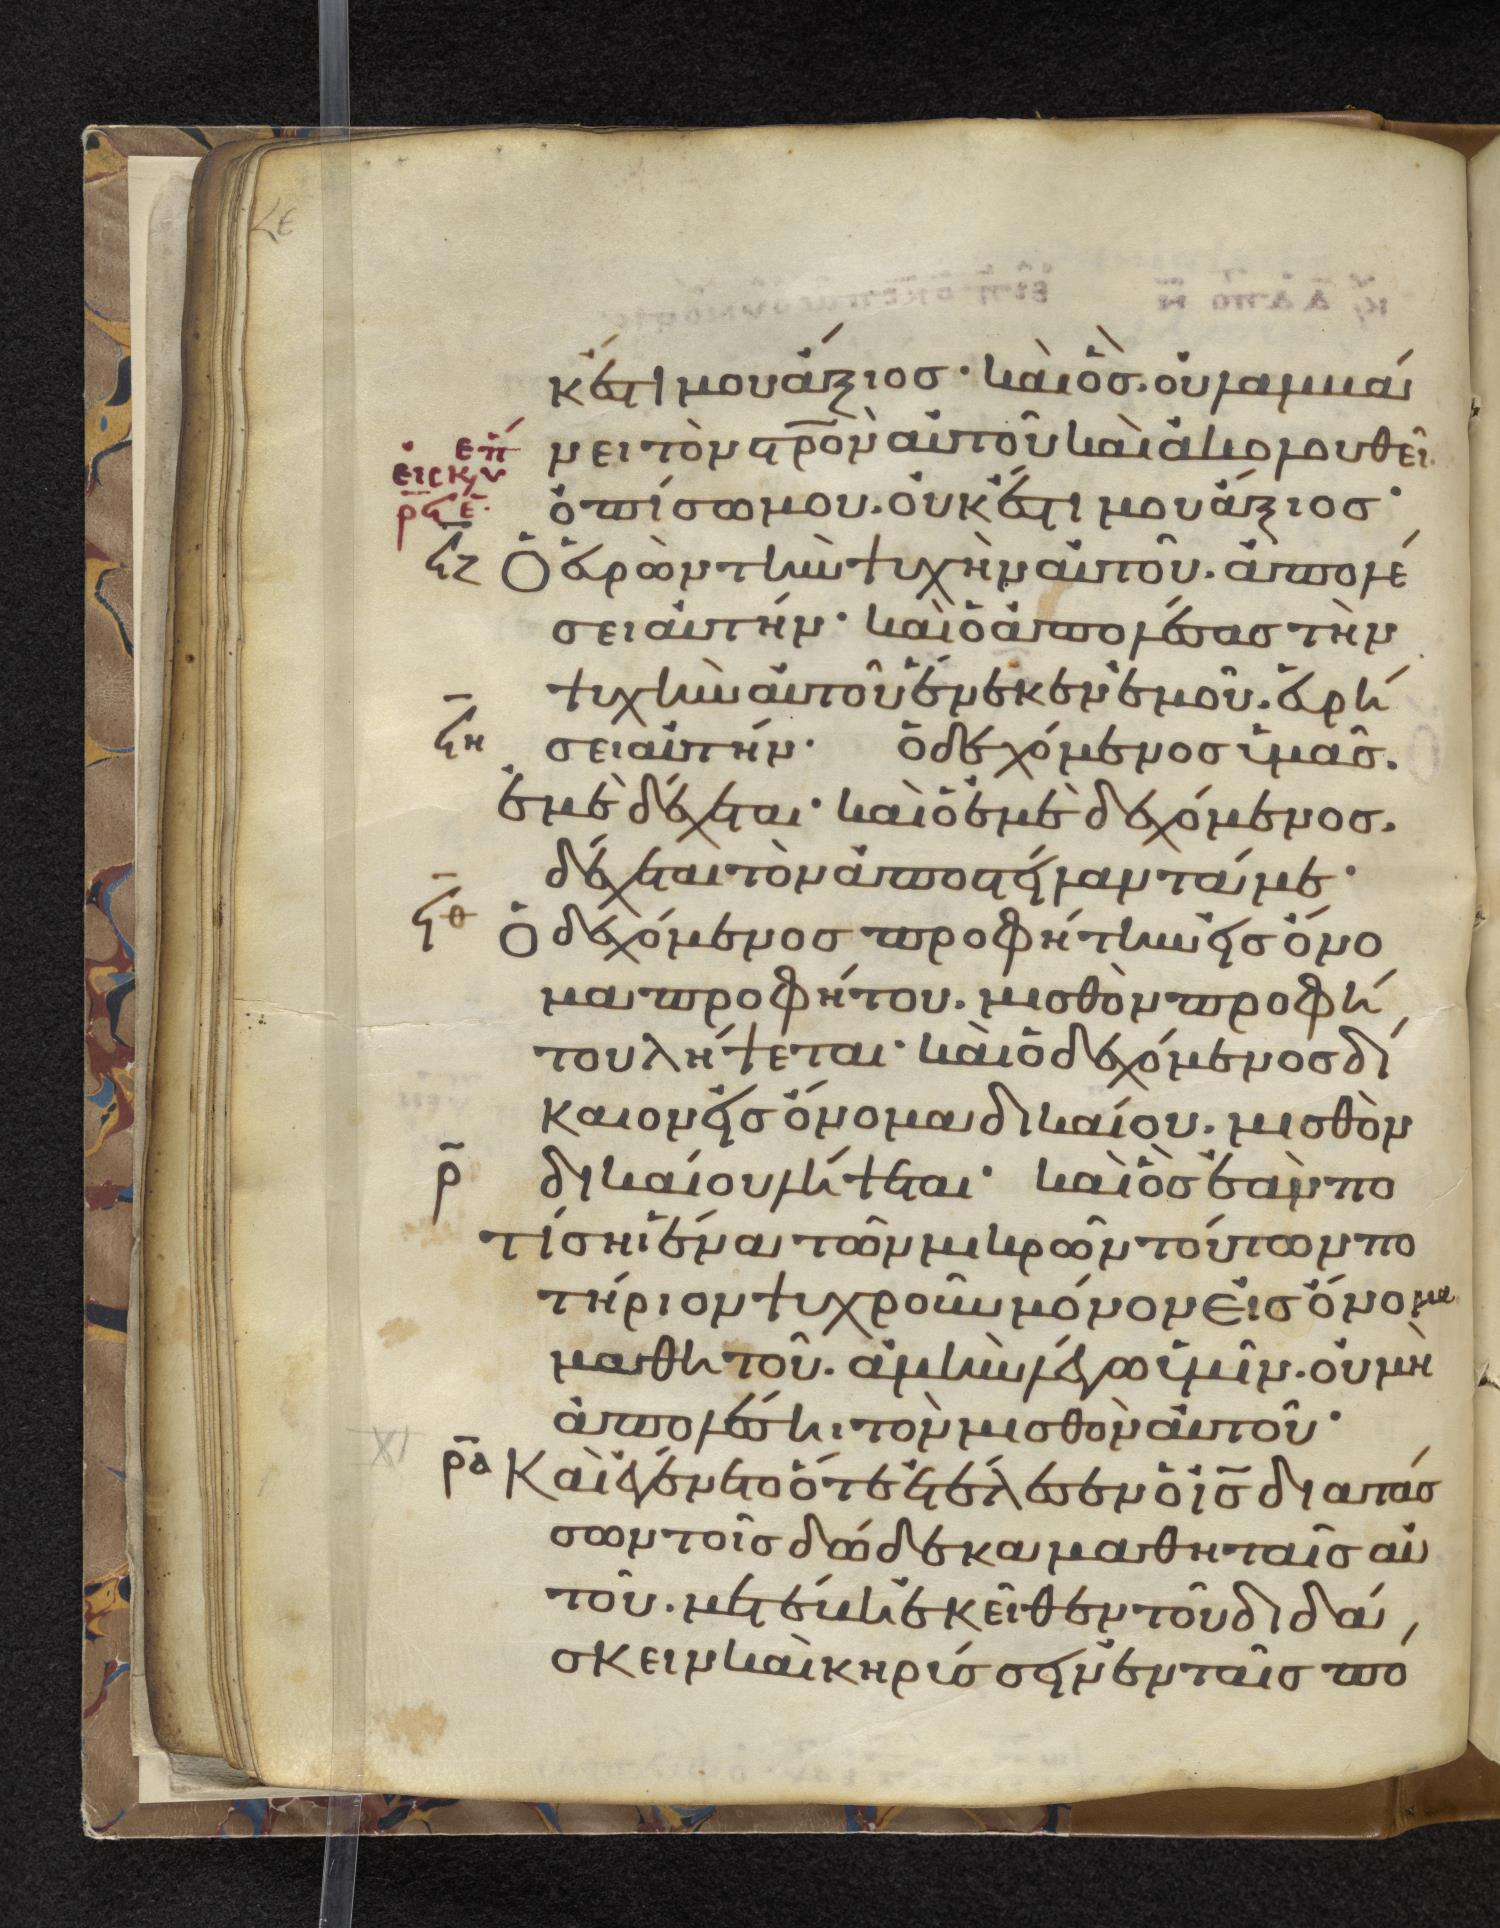 κἔστι μου ἄξιος· καὶ ὃς. οὐ λαμβά
νει τὸν στ̅ρ̅ον αὐτοῦ καὶ ἀκολουθεῖ
ὀπίσω μου. οὐκ ἔστι μου ἄξιος·
ϟζ Ὁ εὑρὼν τὴν ψυχὴν αὐτοῦ. ἀπολέ
σει αὐτήν· καὶ ὁ ἀπολέσας τὴν
ψυχὴν αὐτοῦ ἕνεκεν ἐμοῦ. εὑρή
ϟη σει αὐτήν· ὁ δεχόμενος ὑμᾶς.
ἐμὲ δέχεται· καὶ ὁ ἐμὲ δεχόμενος.
δέχεται τὸν ἀποστείλαντά με·
ϟθ Ὁ δεχόμενος προφήτην εἰς ὄνο
μα προφήτου. μισθὸν προφή
του λήψεται· καὶ ὁ δεχόμενος δί
καιον εἰς ὄνομα δικαίου. μισθὸν
ρ̅ δικαίου λήψεται· καὶ ὃς ἐὰν πο
τίσηι ἕνα τῶν μικρῶν τούτων πο
τήριον ψυχροῦν μόνον εἰς ὄνομα
μαθητοῦ. ἀμὴν λέγω ὑμῖν. οὐ μὴ
ἀπολέσηι τὸν μισθὸν αὐτοῦ·
ρ̅α Καὶ ἐγένετο ὅτε ἐτέλεσεν ὁ ι̅ς̅ διατάσ
σων τοῖς δώδεκα μαθηταῖς αὐ
τοῦ. μετέβη ἐκεῖθεν τοῦ διδά
σκειν καὶ κηρύσσειν ἐν ταῖς πό